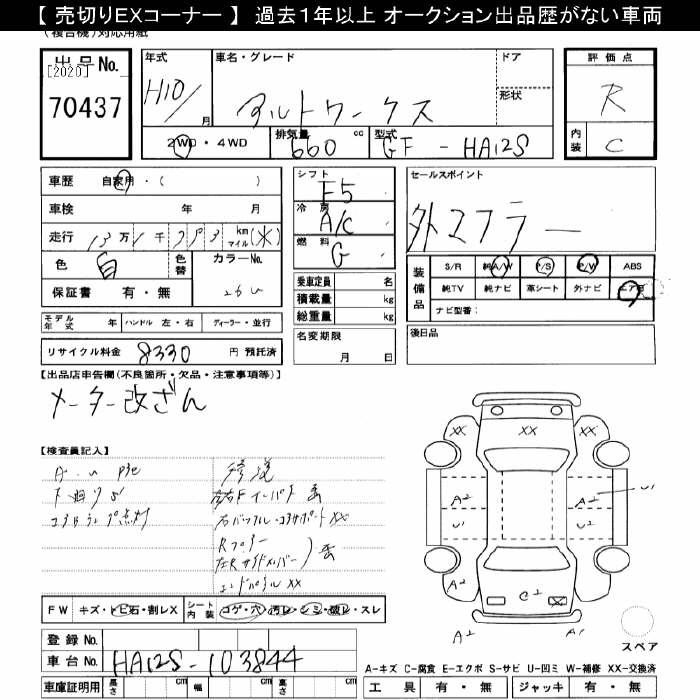 【 売切りEXコーナー 】 過去1年以上 オークション出品歴がない車両
(複合機)対応用紙
出品No.
[2020]
70437
年式 H10/ 月
車名・グレード アルトワークス
ドア
形状
2WD・4WD
排気量 660 cc
型式 GF - HA12S
評価点 R
内装 C
車歴 自家用・( )
車検 年 月
走行 13万1千 km マイル(米)
色 白 色替 カラーNo. 26U
保証書 有・無
モデル年式 年 ハンドル 左・右 ディーラー・並行
リサイクル料金 8330 円 預託済
シフト F5
冷房 A/C
燃料 G
乗車定員 名
積載量 kg
総重量 kg
名変期限 月 日
セールスポイント
外マフラー
装備品
S/R 純A/W P/S P/W ABS
純TV 純ナビ 革シート 外ナビ エアB
ナビ型番:
後日品
【出品店申告欄(不良箇所・欠品・注意事項等)】
メーター改ざん
【検査員記入】
修復
コアサポート XX
Rフロアー
エンドパネル XX
FW キズ・トビ石・割レX シート内装 コゲ・穴・汚レ・シミ・破レ・スレ
登録No.
車台No. HA12S-103844
車庫証明用 長さ cm 幅 cm 高さ cm
XX XX XX
A2 A2 U1
U1 U2
A2 C2 A2
A2 A1
スペア
A-キズ C-腐食 E-エクボ S-サビ U-凹ミ W-補修 XX-交換済
工具 有・無 ジャッキ 有・無